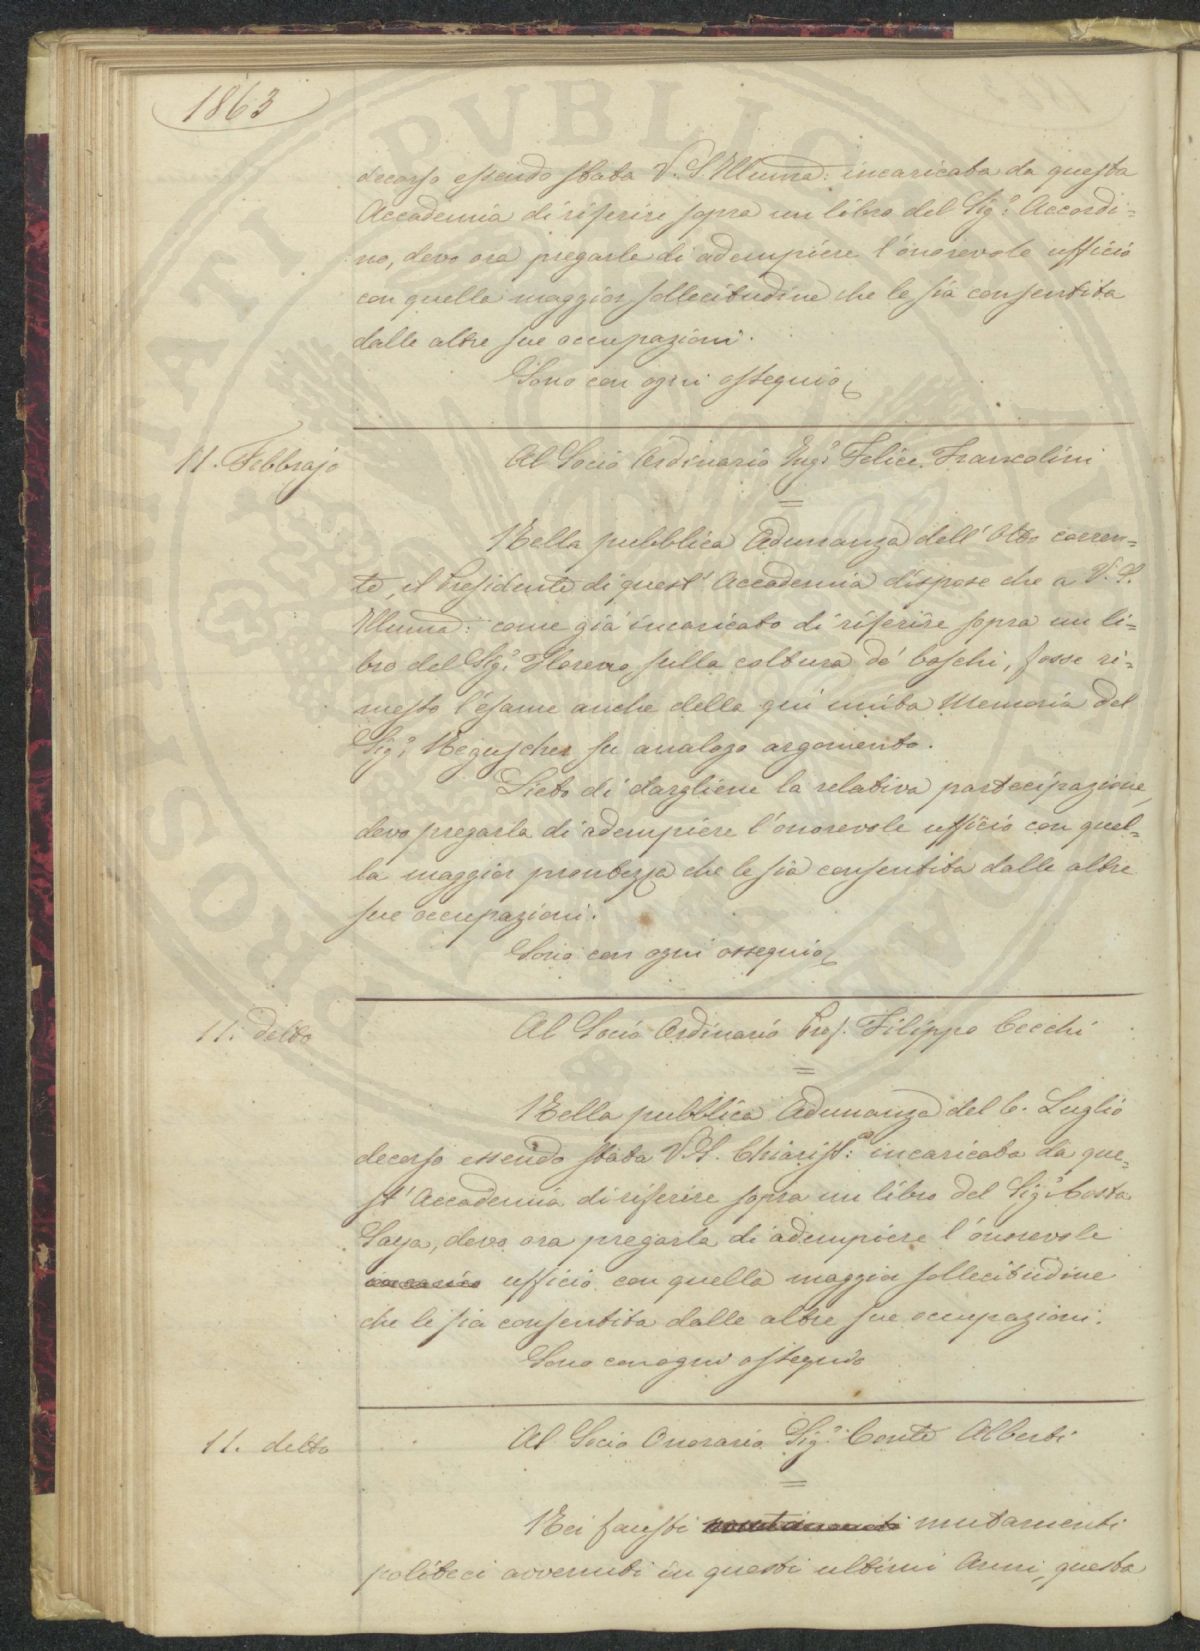 1863
decorso essendo stata V. S. Illuma: incaricata da questa
Accademia di riferire sopra un libro del Sigr. Accordi=
no, devo ora pregarla di adempiere l'onorevole ufficio
con quella maggior sollecitudine che le sia consentita
dalle altre sue occupazioni.
Sono con ogni ossequio
11. Febbrajo
Al Socio Ordinario Ingr. Felice Francolini
=
Nella pubblica Adunanza dell' Otto corren=
te, il Presidente di quest' Accademia dispose che a V. S.
Illuma: come già incaricato di riferire sopra un li=
bro del Sigr. sulla coltura de' boschi, fosse ri=
messo l'esame anche della qui unita Memoria del
Sigr. su analogo argomento.
Lieto di dargliene la relativa partecipazione,
devo pregarla di adempiere l'onorevole ufficio con quel=
la maggior prontezza che le sia consentita dalle altre
sue occupazioni.
Sono con ogni ossequio
11. detto
Al Socio Ordinario Prof. Filippo Cecchi
=
Nella pubblica Adunanza del 6. Luglio
decorso essendo stata V. S. Chiarissa: incaricata da que=
st' Accademia di riferire sopra un libro del Sigr. Costa
Saya, devo ora pregarla di adempiere l'onorevole
incarico ufficio con quella maggior sollecitudine
che le sia consentita dalle altre sue occupazioni.
Sono con ogni ossequio
11. detto
Al Socio Onorario Sigr. Conte Alberti
=
Nei fausti mutamenti
politici avvenuti in questi ultimi Anni, questa
PVBLICAE